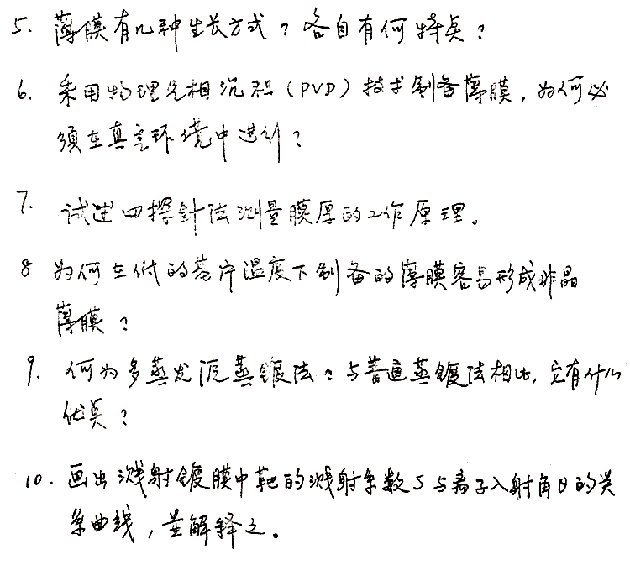 5. 薄膜有几种生长方式？各自有何特点？
6. 采用物理气相沉积（PVD）技术制备薄膜，为何必
须在真空环境中进行？
7. 试述四探针法测量膜厚的工作原理。
8 为何在低的基片温度下制备的薄膜容易形成非晶
薄膜？
9. 何为多蒸发源蒸镀法？与普通蒸镀法相比，它有什么
优点？
10. 画出溅射镀膜中靶的溅射系数S与离子入射角θ的关
系曲线，并解释之。